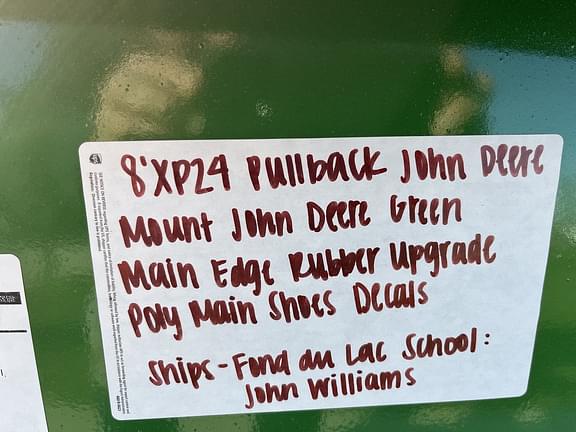 8'XP24 Pullback John Deere
Mount John Deere Green
Main Edge Rubber Upgrade
Poly Main Shoes Decals
Ships-Fond du Lac School:
John Williams